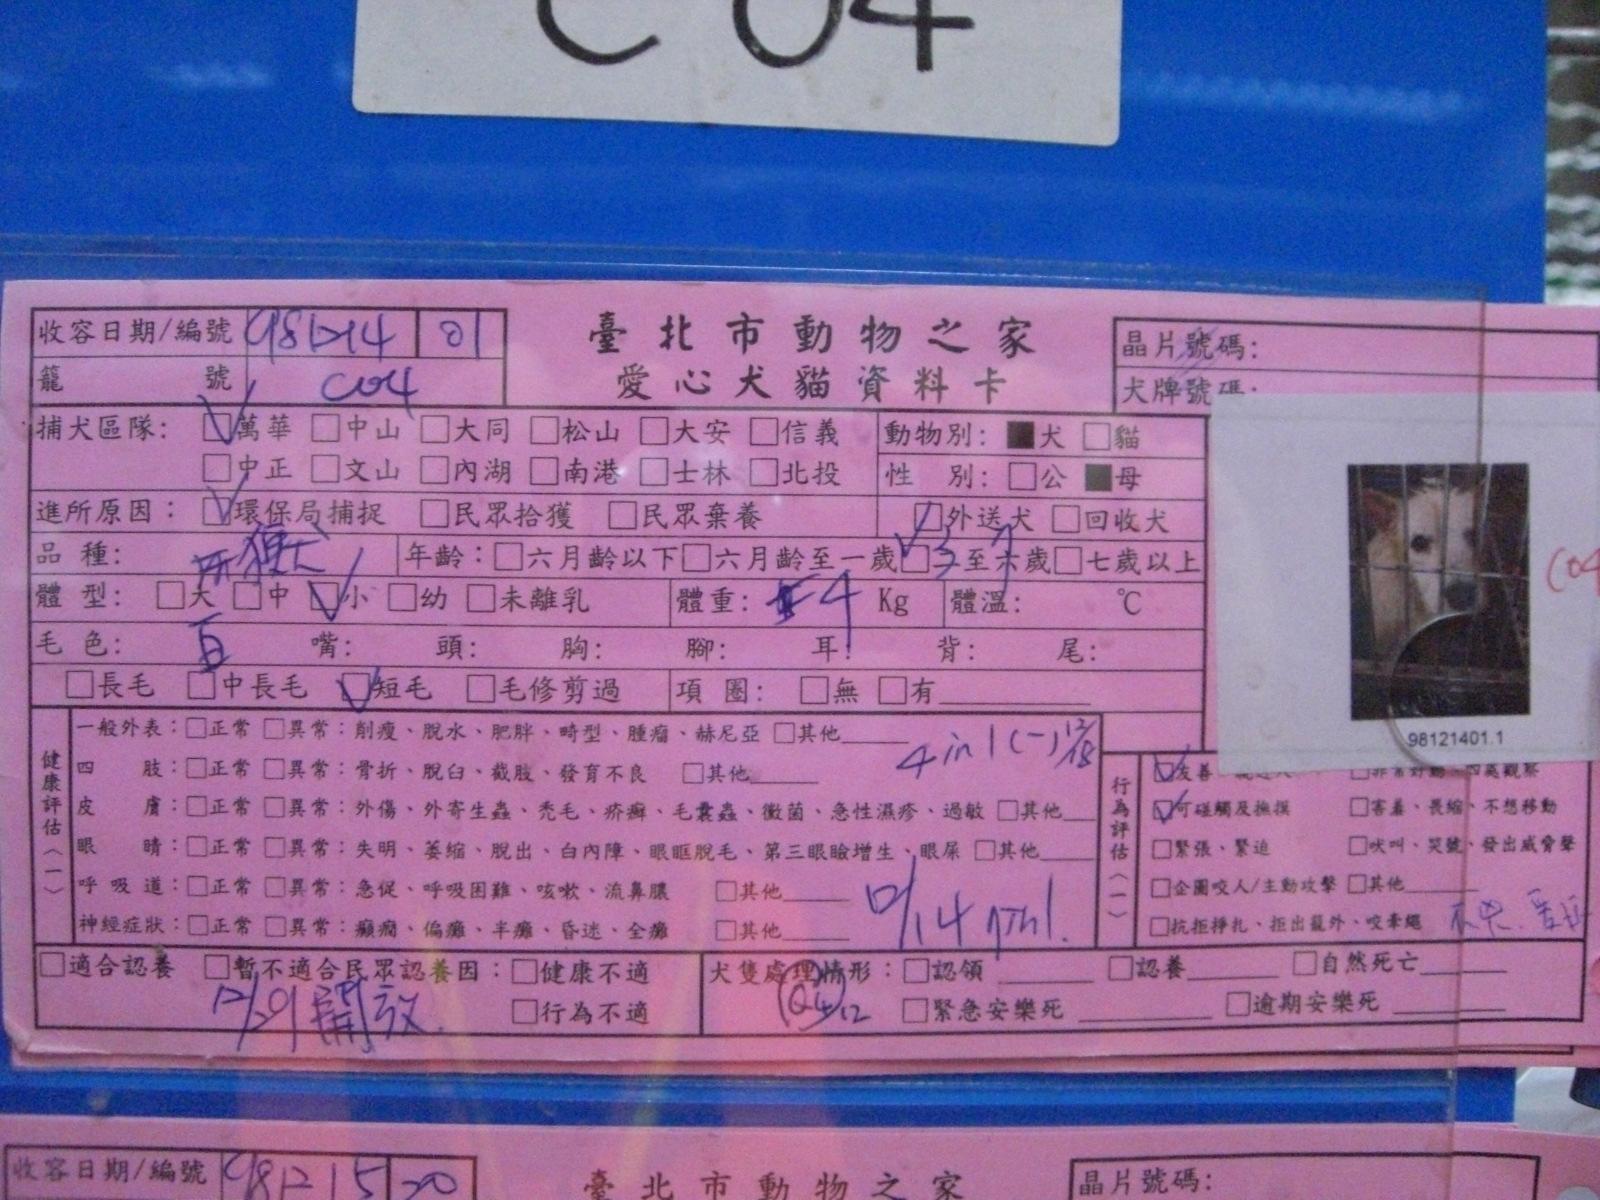 C04
收容日期/編號 981214 01
臺北市動物之家
晶片號碼:
籠 號 C04
愛心犬貓資料卡
犬牌號碼:
捕犬區隊: □萬華 □中山 □大同 □松山 □大安 □信義
動物別: ■犬 □貓
□中正 □文山 □內湖 □南港 □士林 □北投
性 別: □公 ■母
進所原因: □環保局捕捉 □民眾拾獲 □民眾棄養
□外送犬 □回收犬
品種: 狐狸犬
年齡: □六月齡以下 □六月齡至一歲 □至六歲 □七歲以上
體型: □大 □中 □小 □幼 □未離乳
體重: 4 Kg
體溫: ℃
毛色: 白 嘴: 頭: 胸: 腳: 耳: 背: 尾:
□長毛 □中長毛 □短毛 □毛修剪過
項圈: □無 □有
C04
98121401.1
健康評估(一)
一般外表: □正常 □異常: 削瘦、脫水、肥胖、畸型、腫瘤、赫尼亞 □其他
4 in 1 (-) 12/18
四 肢: □正常 □異常: 骨折、脫臼、截肢、發育不良 □其他
皮 膚: □正常 □異常: 外傷、外寄生蟲、禿毛、疥癬、毛囊蟲、黴菌、急性濕疹、過敏 □其他
眼 睛: □正常 □異常: 失明、萎縮、脫出、白內障、眼眶脫毛、第三眼瞼增生、眼屎 □其他
呼吸道: □正常 □異常: 急促、呼吸困難、咳嗽、流鼻膿 □其他
神經症狀: □正常 □異常: 癲癇、偏癱、半癱、昏迷、全癱 □其他
12/14
行為評估(一)
□友善 □非常好動、四處觀察
□可碰觸及撫摸 □害羞、畏縮、不想移動
□緊張、緊迫 □吠叫、哭號、發出威脅聲
□企圖咬人/主動攻擊 □其他
□抗拒掙扎、拒出籠外、咬牽繩
□適合認養 □暫不適合民眾認養因: □健康不適
□行為不適
12/29 開放
犬隻處理情形: □認領 □認養 □自然死亡
□緊急安樂死 □逾期安樂死
收容日期/編號 981215 20
臺北市動物之家
晶片號碼: